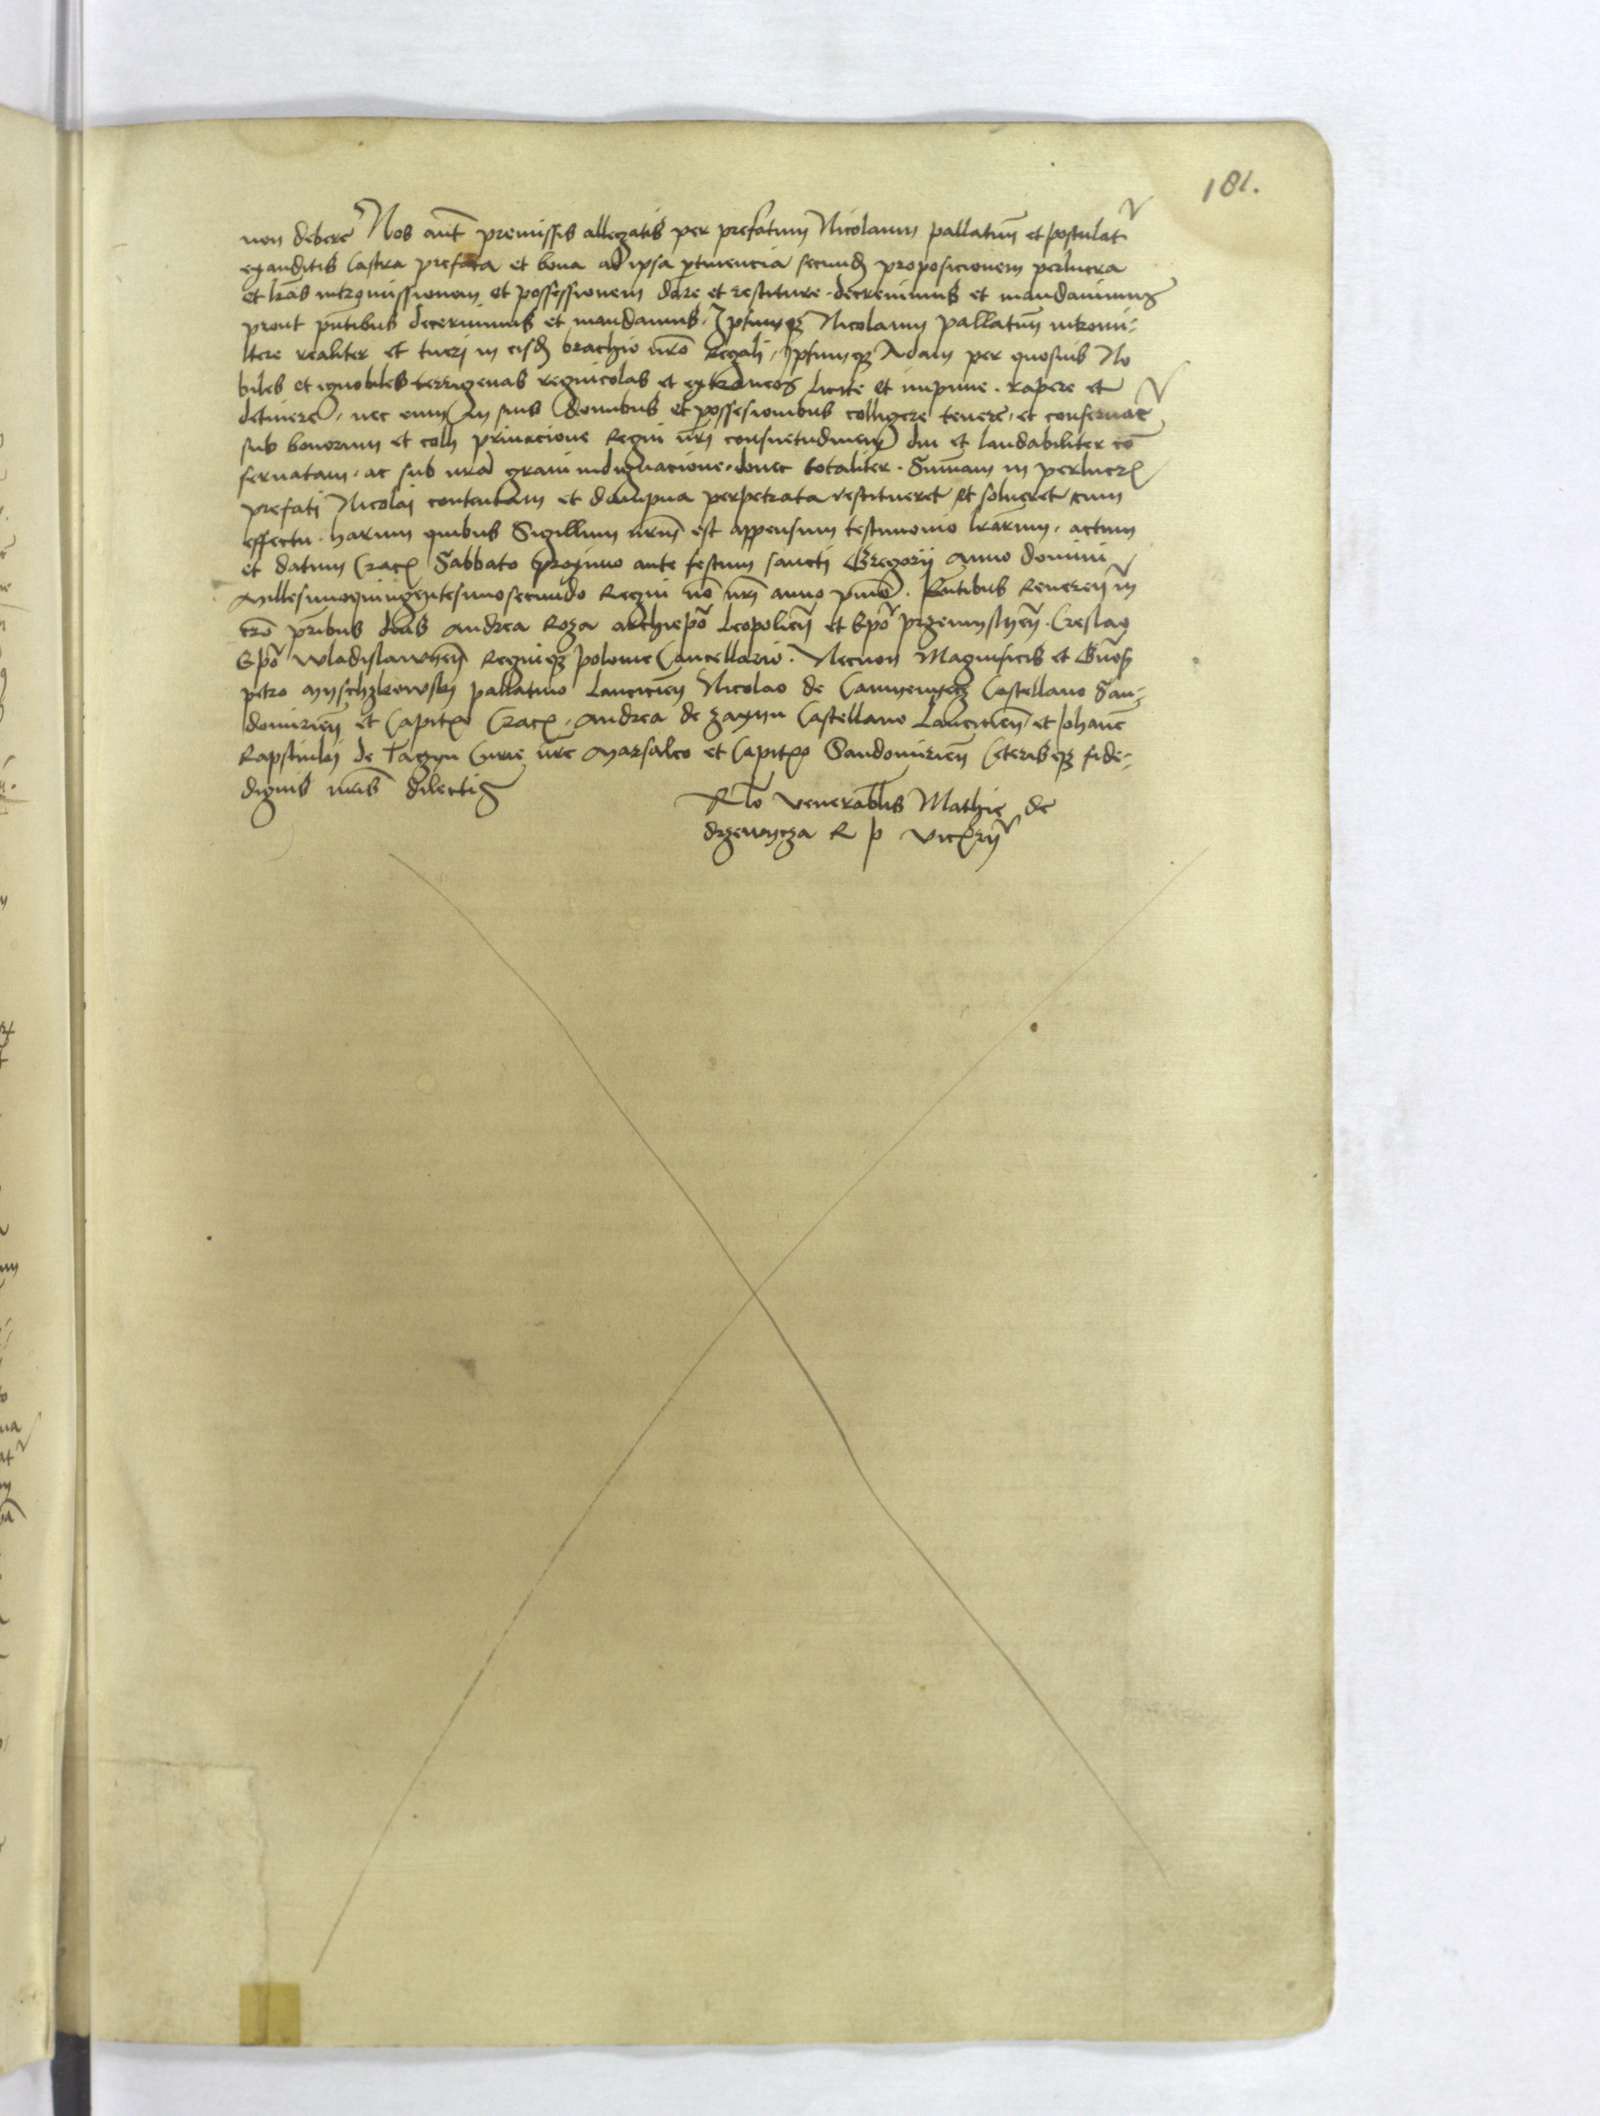 181.
non debere Nos aut premissis allegatis per prefatum Nicolaum pallatinu et postulat
exauditis Castra prefata et bona ad ipsa ptinencia secund proposicionem perlucra
et lras intromissionem et possessionem dare et restituere decrevimus et mandavimus
prout pntibus decernimus et mandamus. Ipsumq Nicolaum pallatinu intromi-
ttere realiter et tueri in eisd brachio nro Regali, Ipsumq Adam per quosvis No
biles et ignobiles terrigenas regnicolas et extraneos licite et impune. rapere et
detinere, nec eum in suis domibus et possesionibus colligere tenere, et conservar
sub bonorum et colli privacione Regni nri consuetudinem diu et laudabiliter co
servatam. ac sub nra gravi indignacione. donec totaliter. Summam in perlucr
prefati Nicolai contentam et dampna perpetrata restitueret et solveret cum
effectu. harum quibus Sigillum nrum est appensum testimonio lrarum. actum
et datum Crac Sabbato proximo ante festum sancti Gregorii Anno domini
Millesimoquingentesimosecundo Regni vo nri anno pmo. Pntibus Reveren in
cro pribus dnis Andrea Roza archiepo Leopolien et Epo przemyslien. Creslao
Epo wladislavien Regniq polonie Cancellario. Necnon Magnificis et Gnosis
petro myschkowsky pallatino Lancicien Nicolao de Camyenyecz Castellano San-
domirien et Capitο Crac. Andrea de zaym Castellano Lancicien et Johane
Rapstinsky de Taczyn Curie nre Marsalco et Capito Sandomirien Ceterisq fide-
dignis nris dilectis
Rlo venerablis Mathie de
drzewycza R p vicκrii